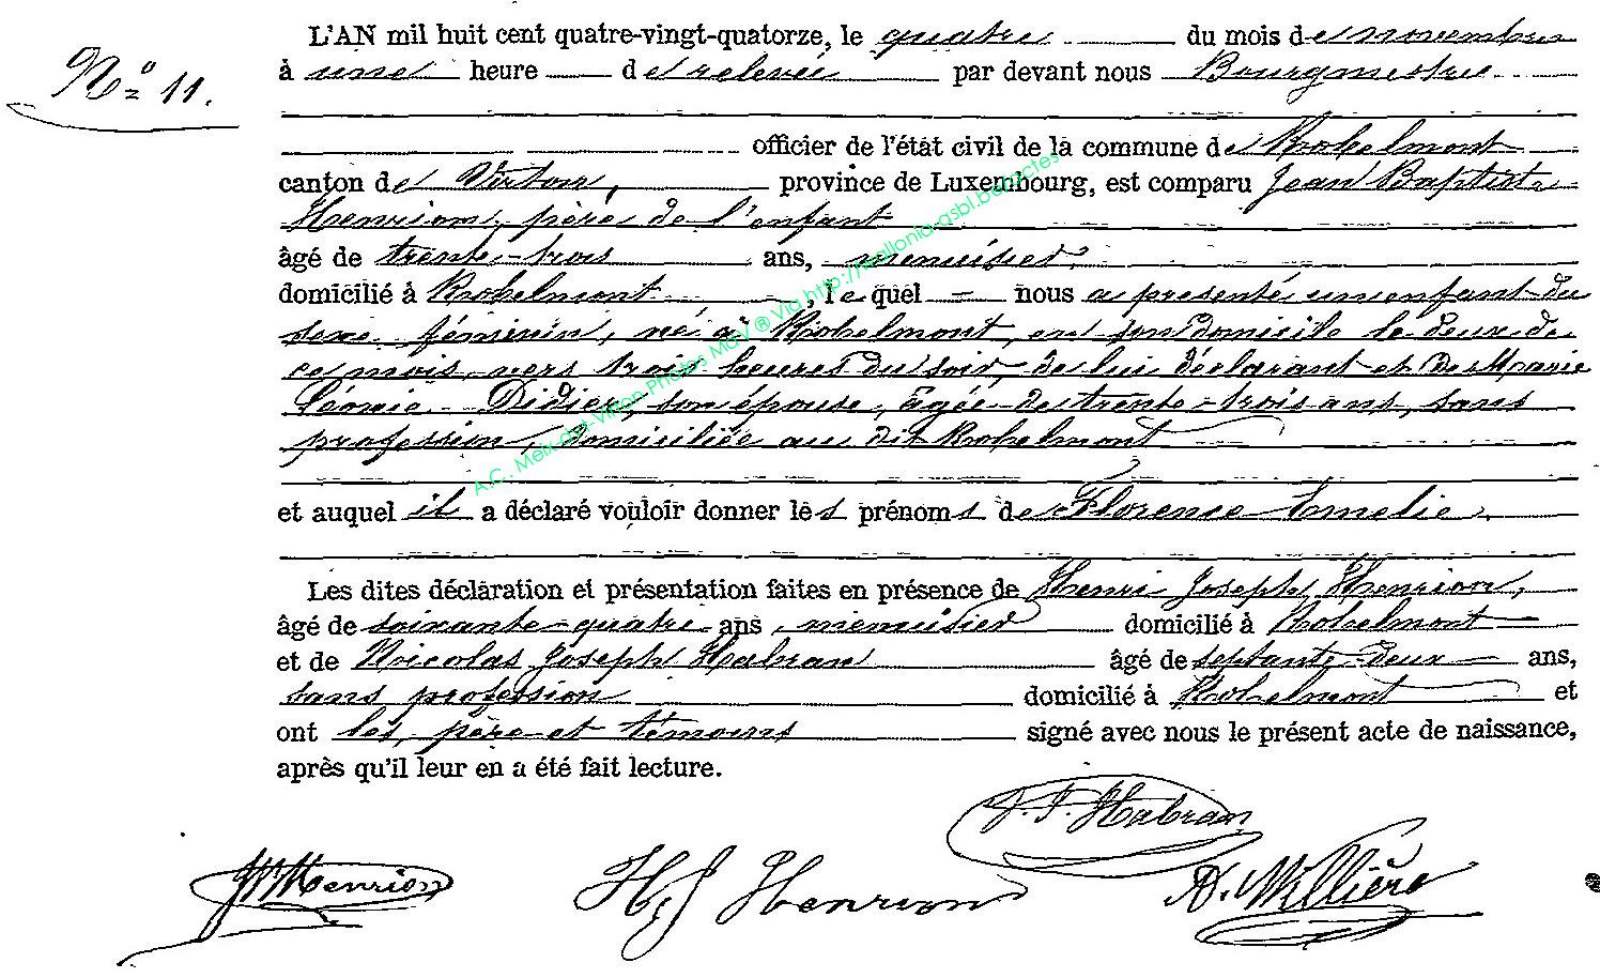 L'AN mil huit cent quatre-vingt-quatorze, le quatre du mois de novembre
Nº 11.
à une heure de relevée par devant nous Bourgmestre
officier de l'état civil de la commune de Robelmont
canton de Virton, province de Luxembourg, est comparu Jean Baptiste
Henrion, père de l'enfant
âgé de trente-trois ans, menuisier,
domicilié à Robelmont, lequel nous a présenté un enfant du
sexe féminin, né à Robelmont, en son domicile le deux de
ce mois, vers trois heures du soir, de lui déclarant et de Marie
Léonie Didier, son épouse, âgée de trente-trois ans, sans
profession, domiciliée au dit Robelmont
et auquel il a déclaré vouloir donner les prénoms de Florence Emelie.
Les dites déclaration et présentation faites en présence de Henri Joseph Henrion,
âgé de soixante-quatre ans, menuisier domicilié à Robelmont
et de Nicolas Joseph Habran âgé de septante-deux ans,
sans profession domicilié à Robelmont et
ont les, père et témoins signé avec nous le présent acte de naissance,
après qu'il leur en a été fait lecture.
Habran
Henrion
H J Henrion
Millière
A.C. Meix-dvt-Virton Photos MGV ® Via http://wallonia-asbl.be/actes